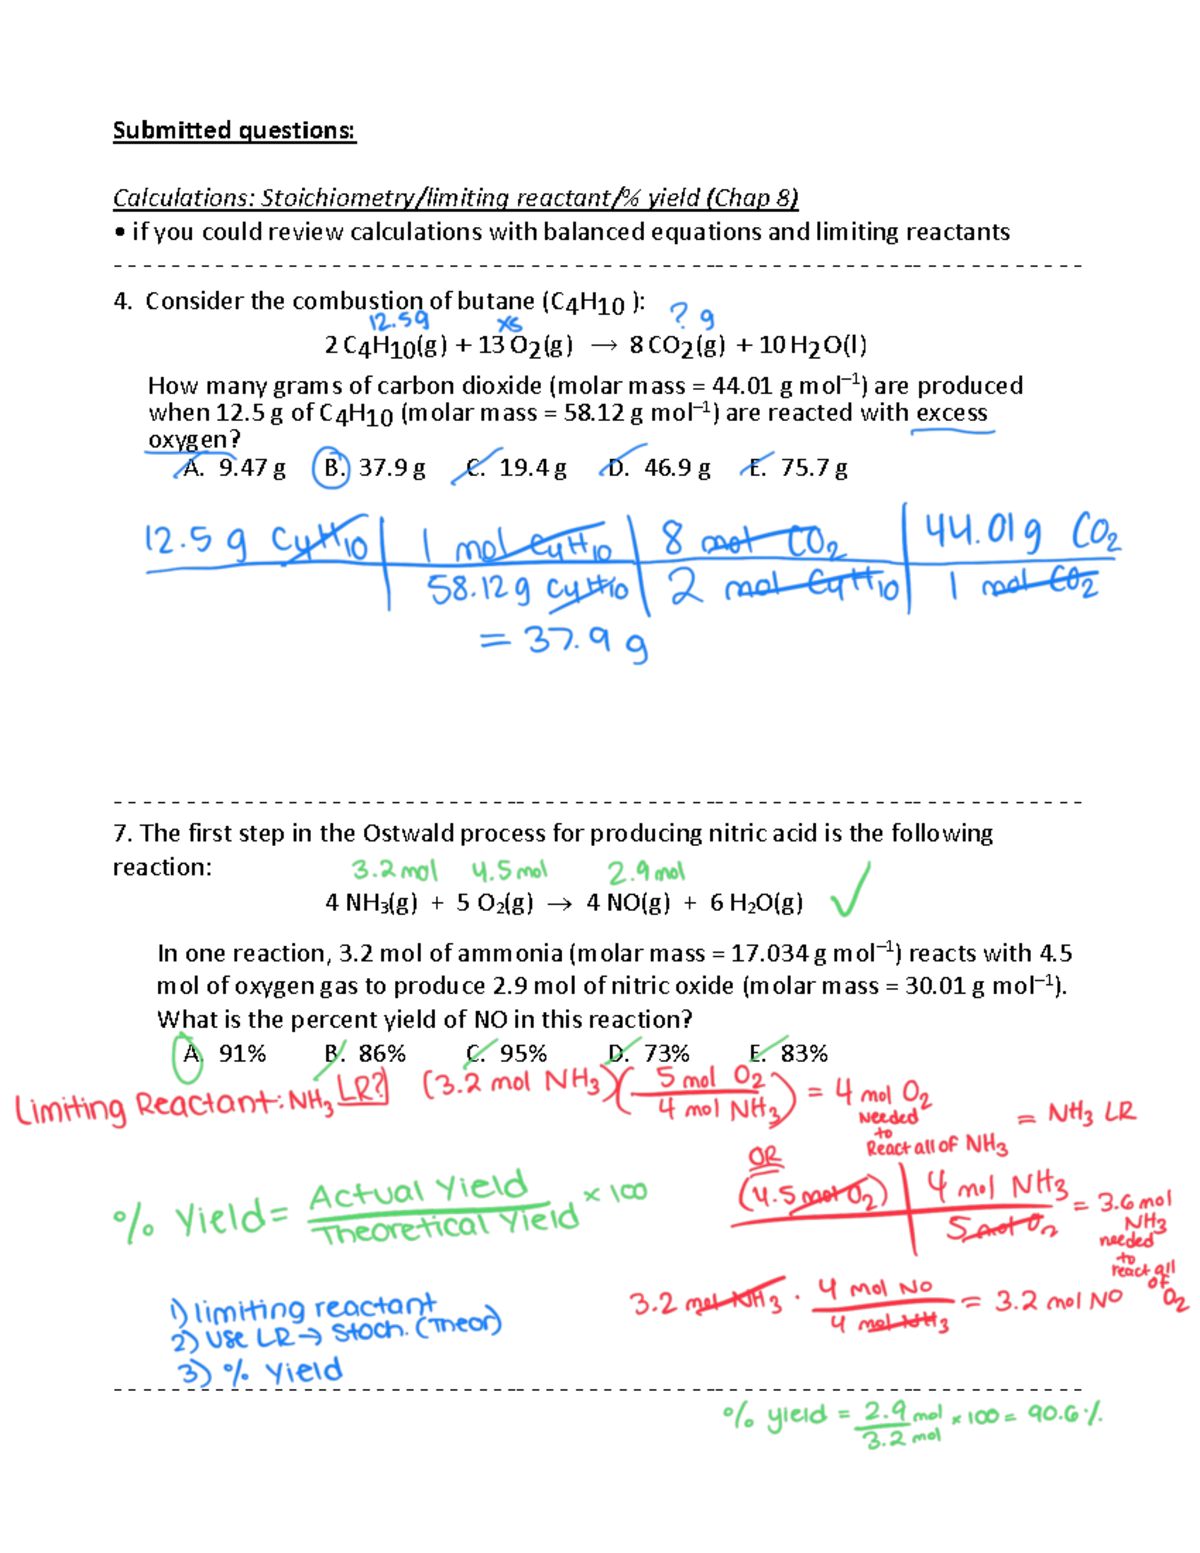 Submitted questions:
Calculations: Stoichiometry/limiting reactant/% yield (Chap 8)
• if you could review calculations with balanced equations and limiting reactants
4. Consider the combustion of butane (C4H10 ):
12.5g xs ? g
2 C4H10(g) + 13 O2(g) → 8 CO2(g) + 10 H2O(l)
How many grams of carbon dioxide (molar mass = 44.01 g mol–1) are produced
when 12.5 g of C4H10 (molar mass = 58.12 g mol–1) are reacted with excess
oxygen?
A. 9.47 g B. 37.9 g C. 19.4 g D. 46.9 g E. 75.7 g
12.5 g C4H10 | 1 mol C4H10 | 8 mol CO2 | 44.01g CO2
58.12g C4H10 | 2 mol C4H10 | 1 mol CO2
= 37.9 g
7. The first step in the Ostwald process for producing nitric acid is the following
reaction:
3.2 mol 4.5 mol 2.9 mol
4 NH3(g) + 5 O2(g) → 4 NO(g) + 6 H2O(g) ✓
In one reaction, 3.2 mol of ammonia (molar mass = 17.034 g mol–1) reacts with 4.5
mol of oxygen gas to produce 2.9 mol of nitric oxide (molar mass = 30.01 g mol–1).
What is the percent yield of NO in this reaction?
A. 91% B. 86% C. 95% D. 73% E. 83%
Limiting Reactant: NH3
LR? (3.2 mol NH3)(5 mol O2 / 4 mol NH3) = 4 mol O2
Needed
to
React all of NH3
= NH3 LR
OR
(4.5 mol O2) | 4 mol NH3 / 5 mol O2 = 3.6 mol
NH3
needed
to
react all
of
O2
% Yield = Actual Yield / Theoretical Yield × 100
3.2 mol NH3 · 4 mol NO / 4 mol NH3 = 3.2 mol NO
1) limiting reactant
2) Use LR → Stoch. (Theor)
3) % Yield
% yield = 2.9 mol / 3.2 mol × 100 = 90.6%